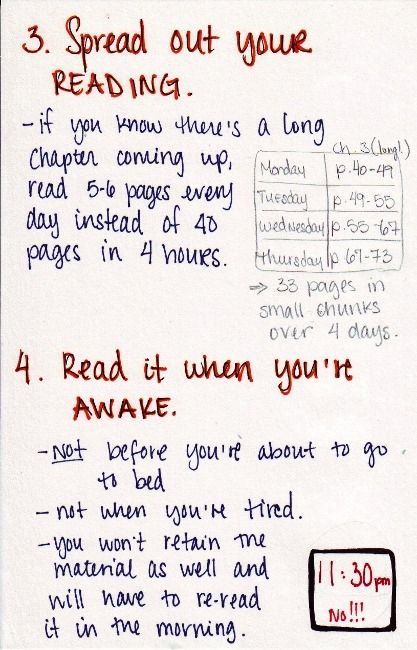 3. Spread out your
READING.
- if you know there's a long
chapter coming up,
read 5-6 pages every
day instead of 40
pages in 4 hours.
Ch. 3 (long!)
Monday p. 40-49
Tuesday p. 49-55
Wednesday p. 55-67
Thursday p 67-73
⇒ 33 pages in
small chunks
over 4 days.
4. Read it when you're
AWAKE.
- Not before you're about to go
to bed
- not when you're tired.
- you won't retain the
material as well and
will have to re-read
it in the morning.
11:30pm
No!!!